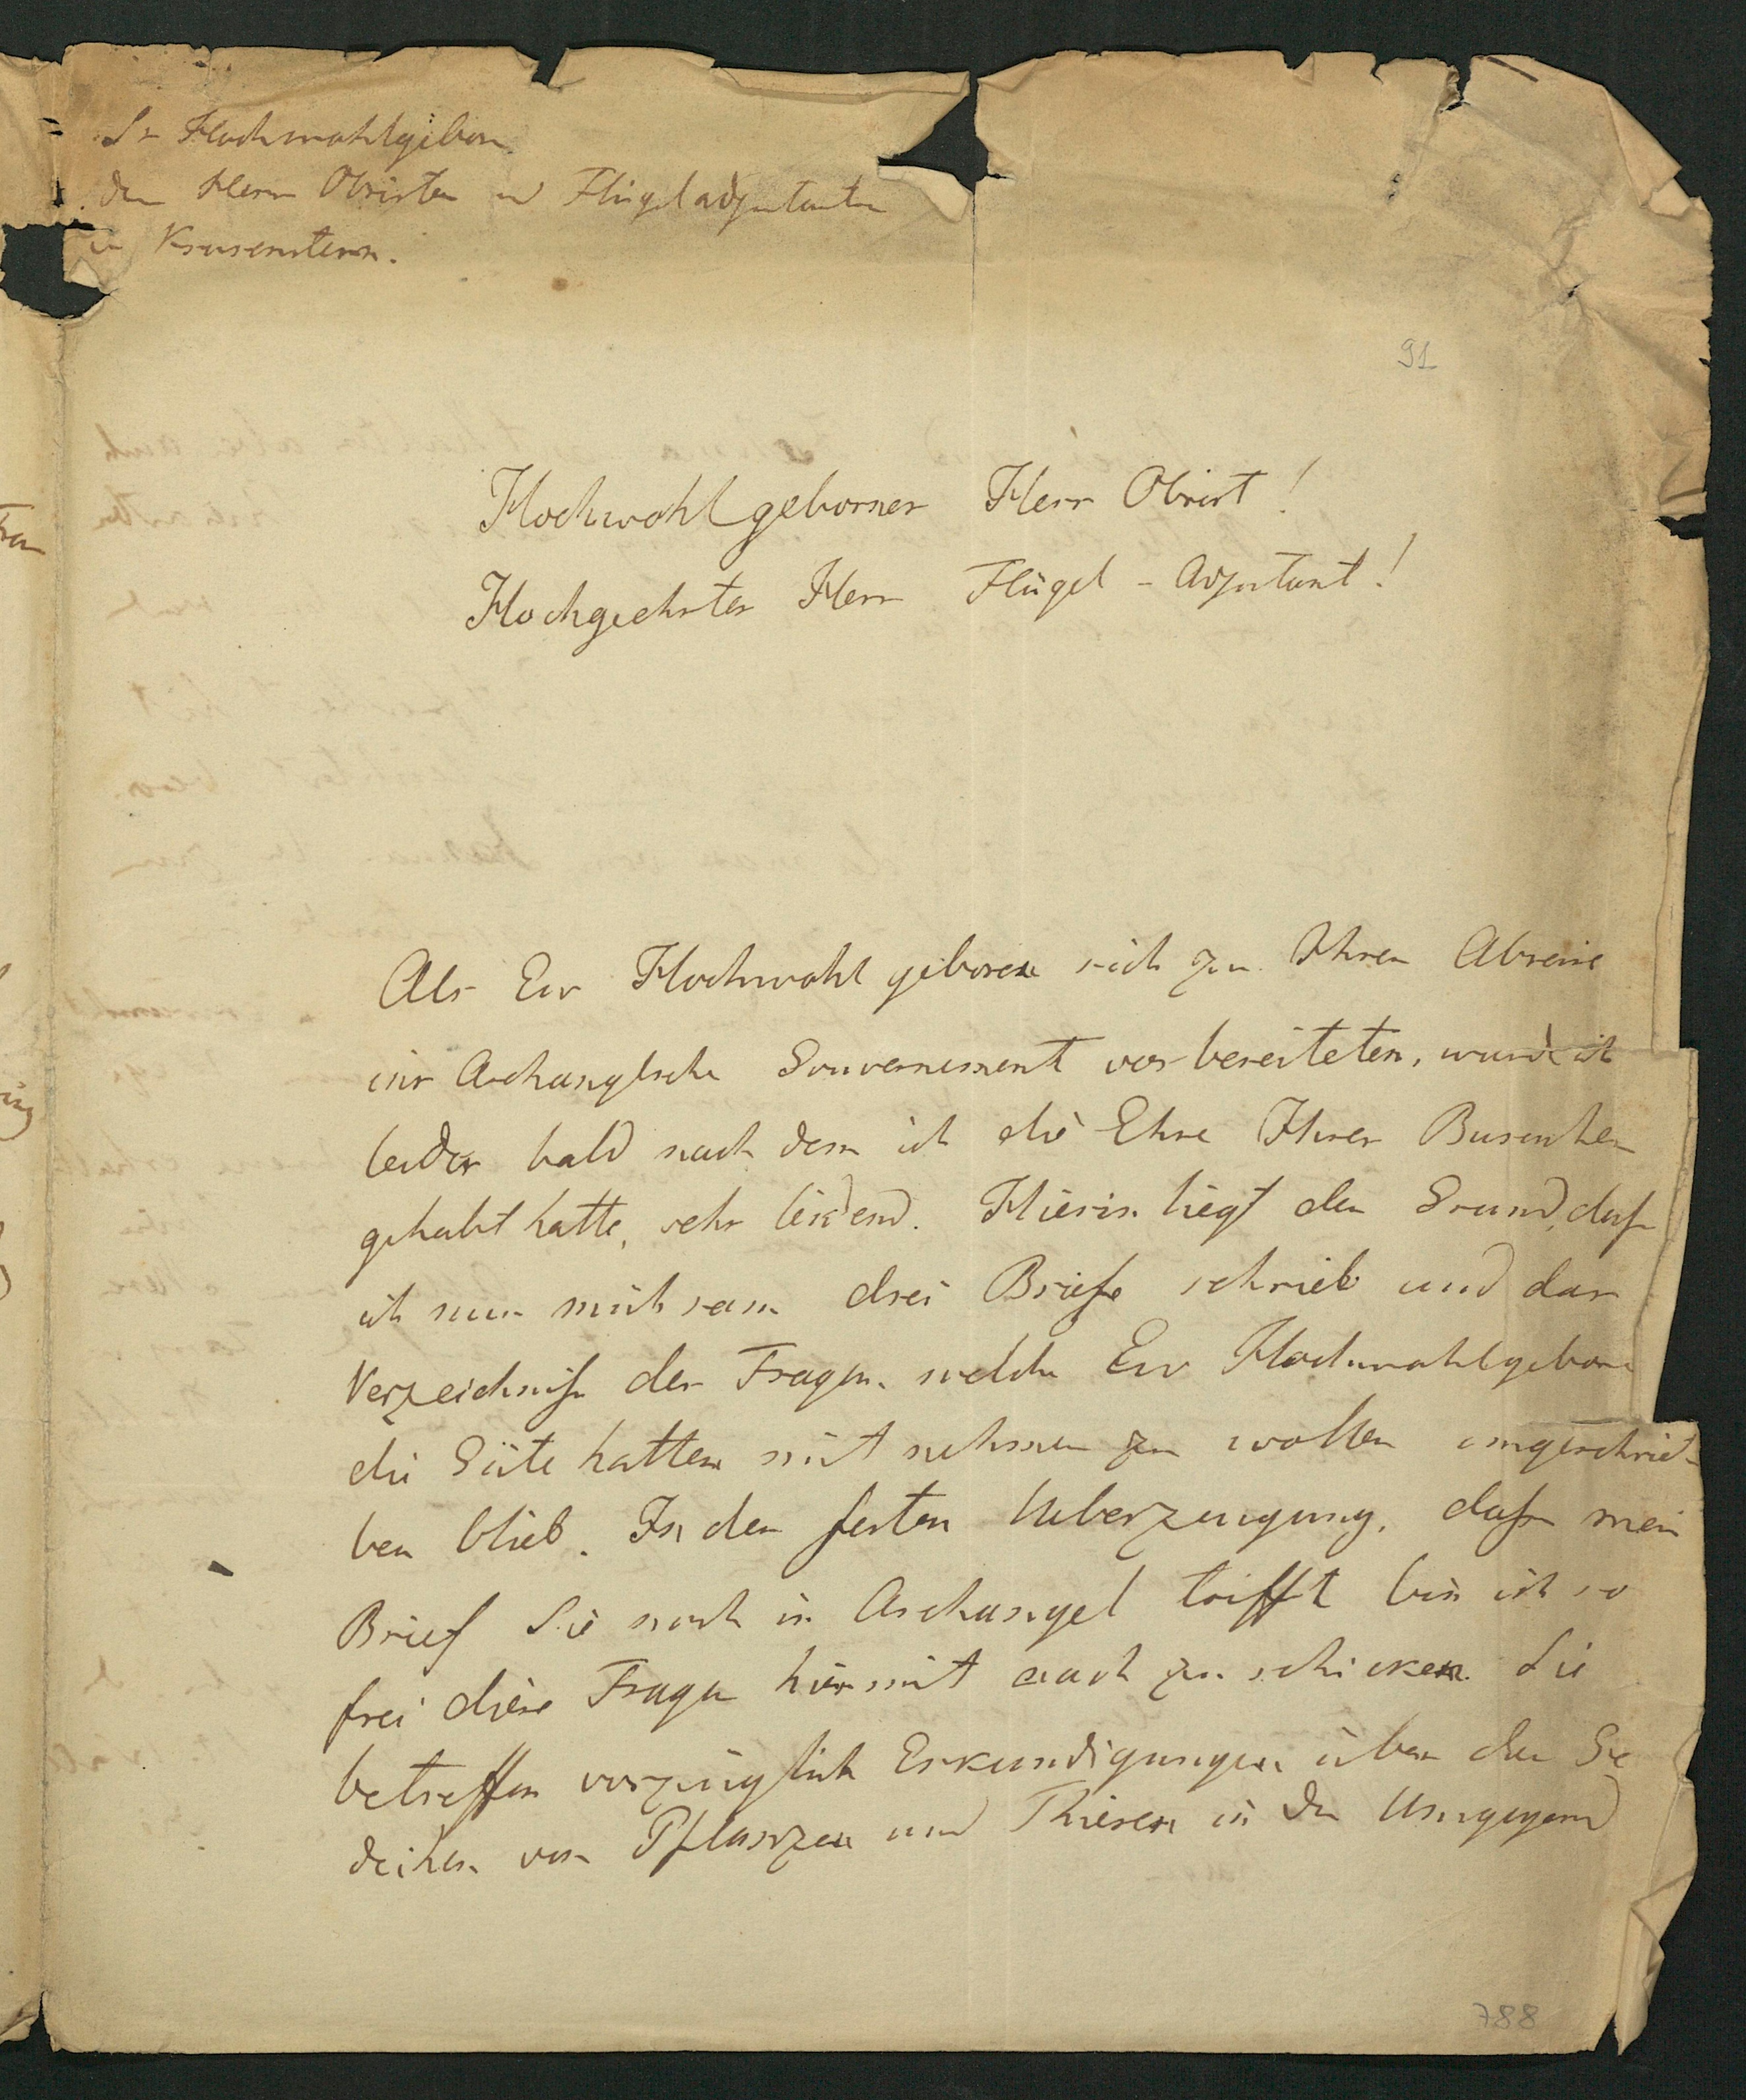 Sr Hochwohlgeboren
dem Herrn Obristen und Flügeladjutanten
v Krusenstern.
91
Hochwohlgeborner Herr Obrist!
Hochgeehrter Herr Flügel-Adjutant!
Als Ew Hochwohlgeboren sich zu Ihrer Abreise
ins Archanglsche Gouvernement vorbereiteten, wurde ich
leider bald nach dem ich die Ehre Ihres Besuches
gehabt hatte, sehr leidend. Hierin liegt der Grund, dass
ich nur mühsam drei Briefe schrieb und das
Verzeichniss der Fragen, welche Ew Hochwohlgeboren
die Güte hatten mit nehmen zu wollen ungeschrie-
ben blieb. In der festen Ueberzeugung, dass mein
Brief Sie noch in Archangel trifft bin ich so
frei diese Fragen hiermit nach zu schicken. Sie
betreffen vorzüglich Erkundigungen über das Ge
deihen von Pflanzen und Thieren in der Umgegend
788